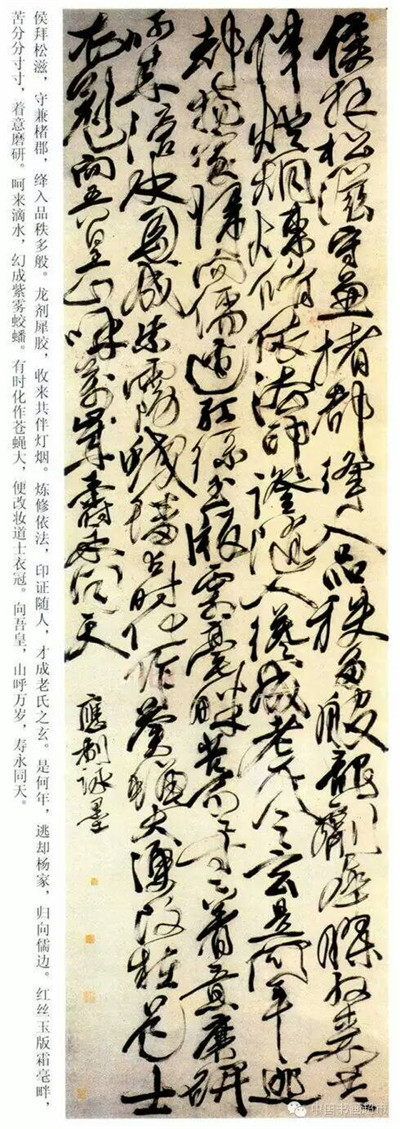 侯拜松滋守兼楮郡絳入品秩多般龍劑犀膠收來共
伴燈烟煉修依法印證隨人才成老氏之玄是何年逃
却楊家歸向儒邊紅絲玉版霜毫畔苦分分寸寸着意磨研
呵來滴水幻成紫霧蛟蟠有時化作蒼蠅大便改粧道士
衣冠向吾皇山呼萬歲壽永同天
應制詠墨
侯拜松滋，守兼楮郡，绛入品秩多般。龙剂犀胶，收来共伴灯烟。炼修依法，印证随人，才成老氏之玄。是何年，逃却杨家，归向儒边。红丝玉版霜毫畔，
苦分分寸寸，着意磨研。呵来滴水，幻成紫雾蛟蟠。有时化作苍蝇大，便改妆道士衣冠。向吾皇，山呼万岁，寿永同天。
中国书画超市